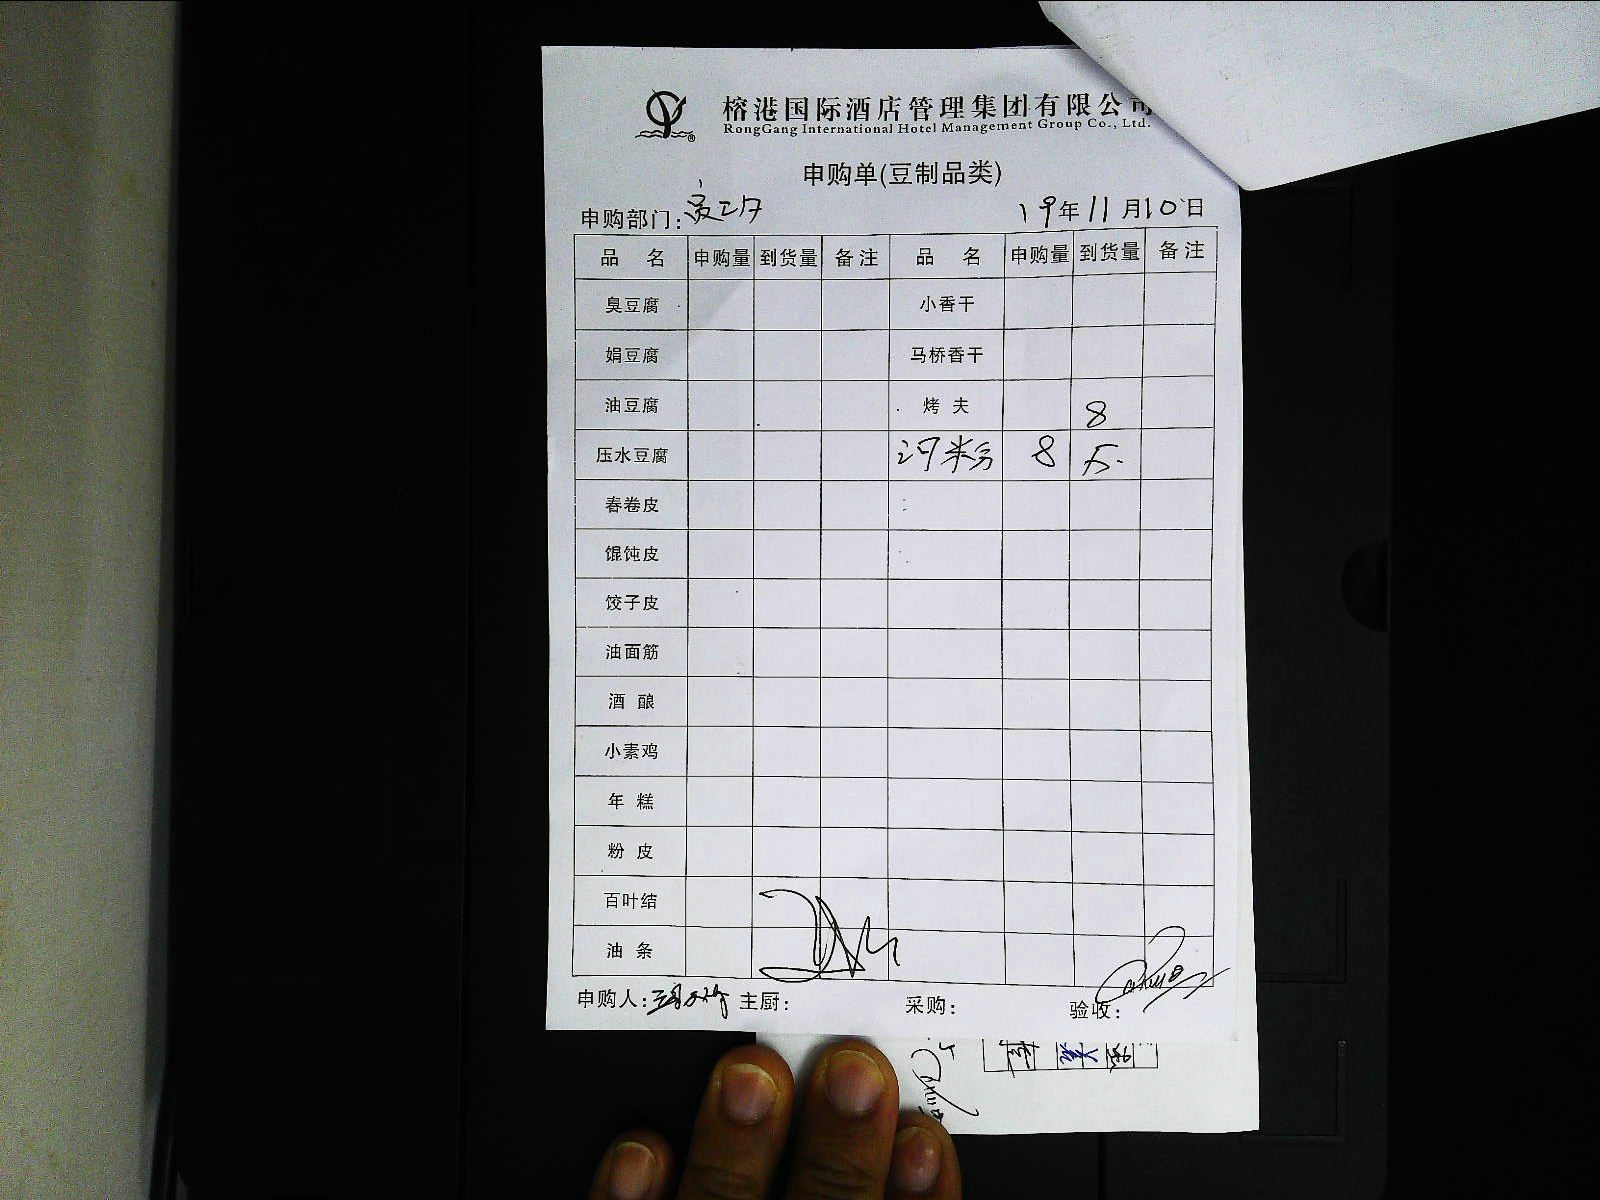 榕港国际酒店管理集团有限公司
RongGang International Hotel Management Group Co., Ltd.
申购单(豆制品类)
申购部门: 19年11月10日
品 名 申购量 到货量 备注 品 名 申购量 到货量 备注
臭豆腐 小香干
娟豆腐 马桥香干
油豆腐 烤 夫 8
压水豆腐 河粉 8 斤
春卷皮
馄饨皮
饺子皮
油面筋
酒 酿
小素鸡
年 糕
粉 皮
百叶结
油 条
申购人: 主厨: 采购: 验收: